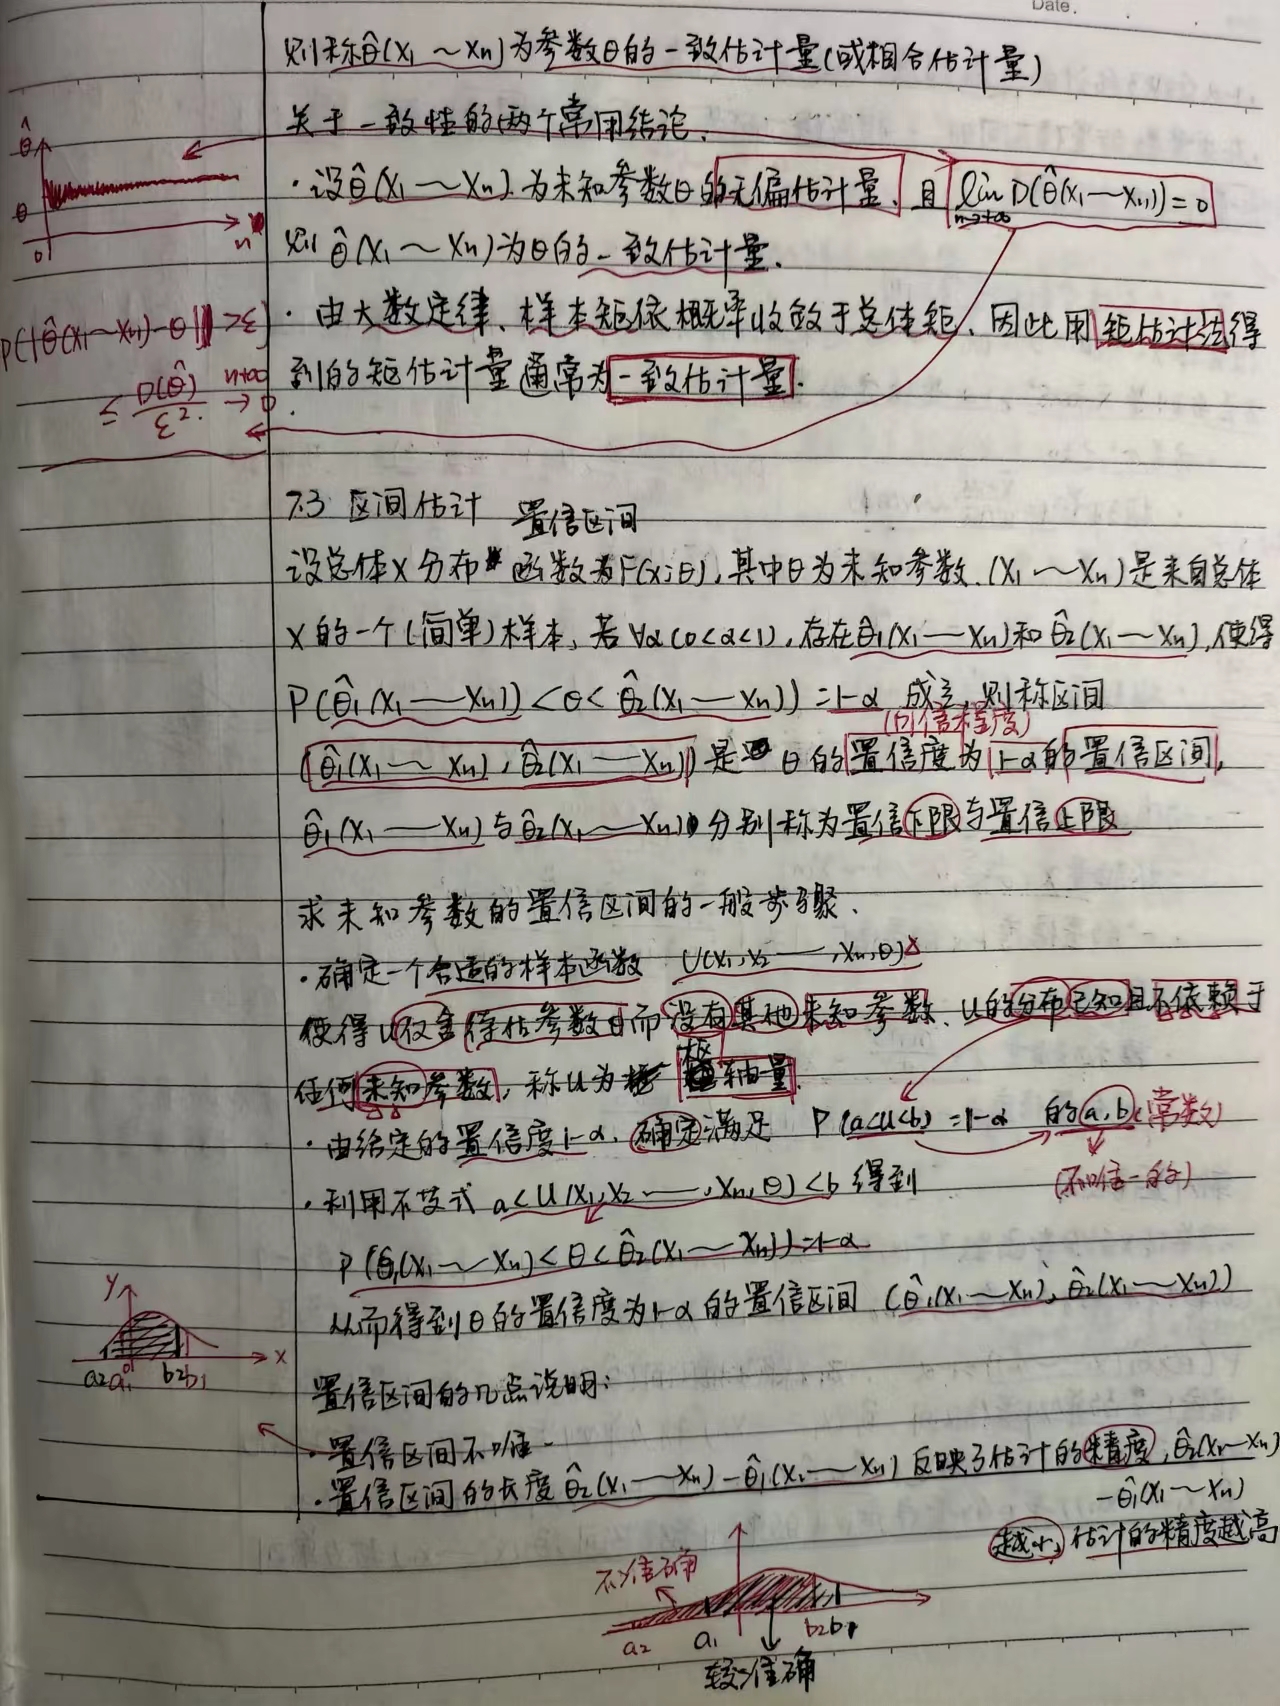 Date.
则称θ̂(X₁～Xn)为参数θ的一致估计量(或相合估计量)
关于一致性的两个常用结论.
·设θ̂(X₁—Xn).为未知参数θ的无偏估计量、且 lim D(θ̂(X₁—Xn))=0
n→+∞
则θ̂(X₁～Xn)为θ的一致估计量.
·由大数定律、样本矩依概率收敛于总体矩、因此用矩估计法得
到的矩估计量通常为一致估计量.
θ̂
θ
0
n
P(|θ̂(X₁～Xn)-θ|≥ε)
≤ D(θ̂)/ε². n→∞ → 0
7.3 区间估计 置信区间
设总体X分布函数为F(x;θ),其中θ为未知参数、(X₁～Xn)是来自总体
X的一个(简单)样本,若∀α(0<α<1),存在θ̂₁(X₁—Xn)和θ̂₂(X₁—Xn),使得
P(θ̂₁(X₁—Xn))<θ<θ̂₂(X₁—Xn))=1-α 成立,则称区间
(可信程度)
(θ̂₁(X₁～Xn),θ̂₂(X₁—Xn))是θ的置信度为1-α的置信区间,
θ̂₁(X₁—Xn)与θ̂₂(X₁—Xn)分别称为置信下限与置信上限
求未知参数的置信区间的一般步骤、
·确定一个合适的样本函数 U(X₁,X₂—,Xn,θ)
使得U仅含待估参数θ而没有其他未知参数、U的分布已知且不依赖于
任何未知参数,称U为枢轴量.
·由给定的置信度1-α、确定满足 P(a<U<b)=1-α 的a,b(常数)
(不唯一的)
·利用不等式 a<U(X₁,X₂—,Xn,θ)<b 得到
P(θ̂₁(X₁～Xn)<θ<θ̂₂(X₁～Xn))=1-α
从而得到θ的置信度为1-α的置信区间 (θ̂₁(X₁～Xn),θ̂₂(X₁～Xn))
y
x
a₂ a₁ 0 b₂ b₁
置信区间的几点说明:
·置信区间不唯一
·置信区间的长度θ̂₂(X₁—Xn)-θ̂₁(X₁—Xn)反映了估计的精度,θ̂₂(X₁—Xn)
-θ̂₁(X₁～Xn)
越小,估计的精度越高
不准确
a₂ a₁ b₂ b₁
较准确